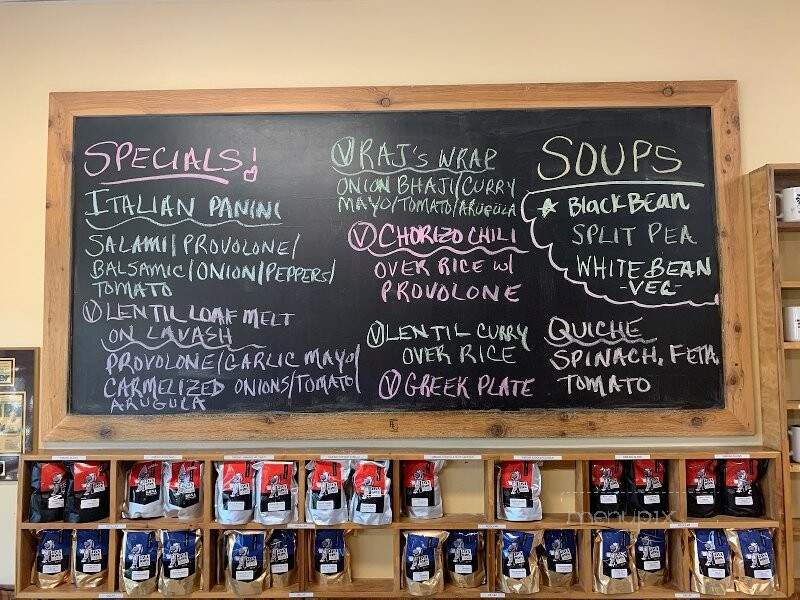 SPECIALS!
ITALIAN PANINI
SALAMI/PROVOLONE/
BALSAMIC/ONION/PEPPERS/
TOMATO
Ⓥ LENTIL LOAF MELT
ON LAVASH
PROVOLONE/GARLIC MAYO/
CARMELIZED ONIONS/TOMATO/
ARUGULA
Ⓥ RAJ'S WRAP
ONION BHAJI/CURRY
MAYO/TOMATO/ARUGULA
Ⓥ CHORIZO CHILI
OVER RICE w/
PROVOLONE
Ⓥ LENTIL CURRY
OVER RICE
Ⓥ GREEK PLATE
SOUPS
★ BLACK BEAN
SPLIT PEA
WHITE BEAN
-VEG-
QUICHE
SPINACH, FETA,
TOMATO
menupix